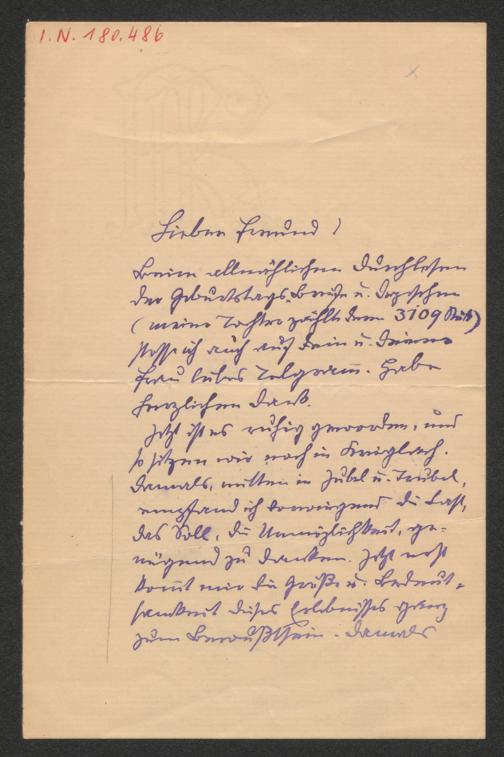 I.N. 180.486
Lieber Freund!
Beim allmählichen Durchlesen
der Geburtstags-Briefe u. Depeschen
(meine Tochter zählte deren 3109 Stück)
stosse ich auch auf Dein u. Deiner
Frau liebes Telegramm. Habe
herzlichen Dank.
Jetzt ist es ruhig geworden, und
so sitzen wir noch in Krieglach.
Damals, mitten in Jubel u. Trubel,
empfand ich vorwiegend die Last,
das Soll, die Unmöglichkeit, ge-
nügend zu danken. Jetzt erst
kommt mir die Größe u. Bedeut-
samkeit dieses Erlebnisses ganz
zum Bewußtsein. Damals